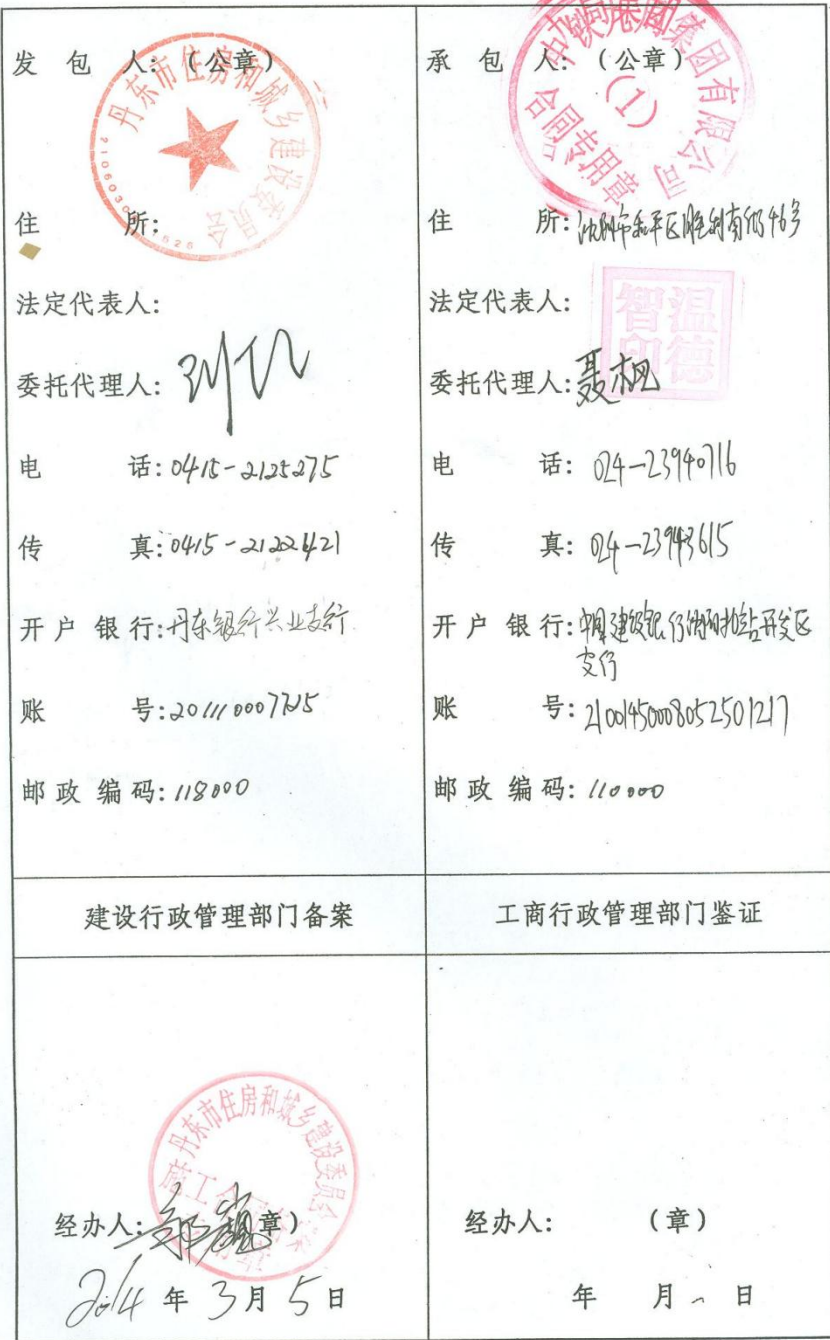 发包人：（公章）
丹东市住房和城乡建设委员会
住所：
法定代表人：
委托代理人：
电话：0415-2125275
传真：0415-2122421
开户银行：丹东银行兴业支行
账号：
邮政编码：118000
承包人：（公章）
集团有限公司
（1）
合同专用章
住所：沈阳市和平区胜利南街46号
法定代表人：
温德智印
委托代理人：聂枫
电话：024-23940716
传真：024-23943615
开户银行：中国建设银行沈阳 开发区
支行
账号：21001450008052501217
邮政编码：110000
建设行政管理部门备案
工商行政管理部门鉴证
丹东市住房和城乡建设委员会
施工合同
经办人： 章）
2014年3月5日
经办人： （章）
年 月 日